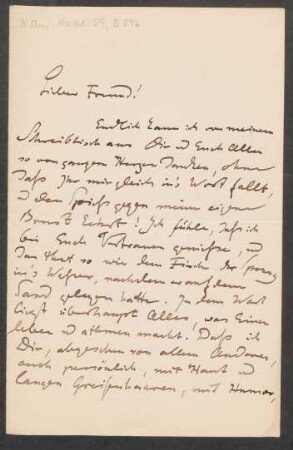 Lieber Freund!
Endlich kann ich von meinem
Schreibtisch aus Dir u Euch Allen
so von ganzem Herzen danken, ohne
daß Ihr mir gleich in's Wort fallt,
u den Spieß gegen meine eigene
Brust kehrt! Ich fühle, daß ich
bei Euch Vertrauen genieße, u
dan that so wie dem Fische der Sprung
in's Wasser, nachdem er auf dem
Sand gelegen hatte. In dem Wort
liegt überhaupt Alles, was Einen
leben u athmen macht. Daß ich
Dir, abgesehen von allem Anderen,
auch persönlich, mit Haut u
langen Greisenhaaren, mit Humor,